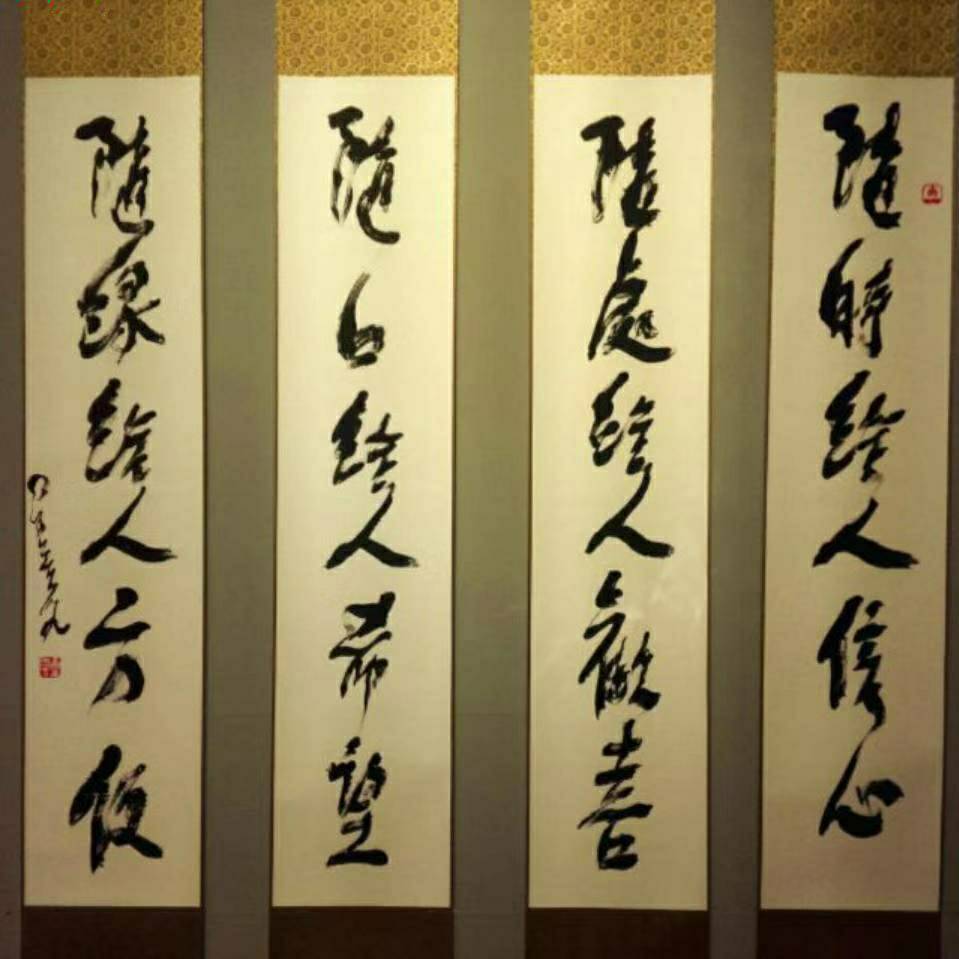 隨時給人信心
隨處給人歡喜
隨給人希望
隨緣給人方便